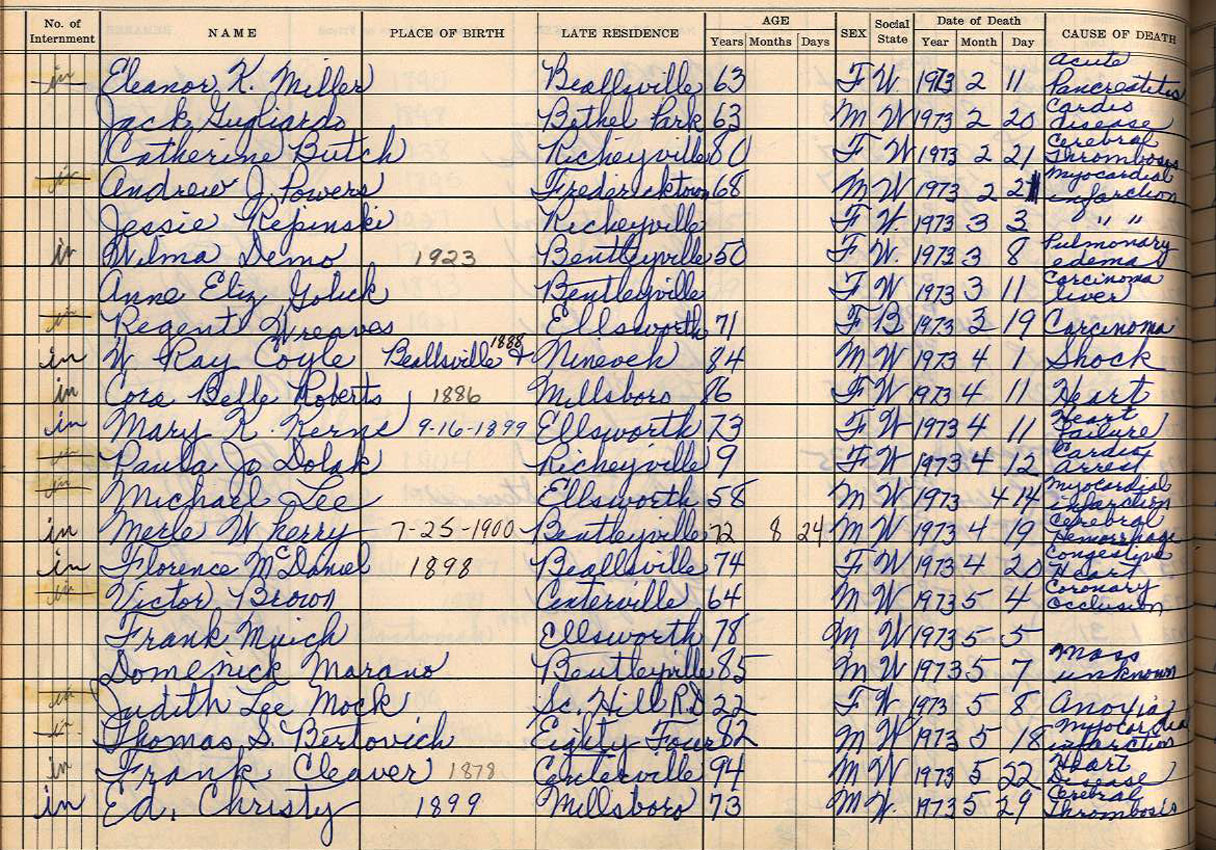 No. of Internment NAME PLACE OF BIRTH LATE RESIDENCE AGE Years Months Days SEX Social State Date of Death Year Month Day CAUSE OF DEATH
in Eleanor K. Miller Beallsville 63 F W. 1973 2 11 Acute Pancreatitis
Jack Gugliardo Bethel Park 63 M W 1973 2 20 Cardio disease
Catherine Butch Richeyville 80 F W 1973 2 21 Cerebral Thrombosis
in Andrew J. Powers Fredericktown 68 M W 1973 2 21 Myocardial infarction
Jessie Repinski Richeyville F W. 1973 3 3 " "
in Wilma Demo 1923 Bentleyville 50 F W. 1973 3 8 Pulmonary edema
Anne Eliz Golick Bentleyville F W 1973 3 11 Carcinoma liver
in Regent Wreaves Ellsworth 71 F B 1973 3 19 Carcinoma
in W Ray Coyle Beallsville 1888 + Nineveh 84 M W 1973 4 1 Shock
in Cora Belle Roberts 1886 Millsboro 86 F W 1973 4 11 Heart
in Mary K. Kerns 9-16-1899 Ellsworth 73 F W 1973 4 11 Heart Failure
in Paula Jo Dolak Richeyville 9 F W 1973 4 12 Cardio arrest
in Michael Lee Ellsworth 58 M W 1973 4 14 Myocardial infarction
in Merle W Kerry 7-25-1900 Bentleyville 72 8 24 M W 1973 4 19 Cerebral Hemorrhage
in Florence McDaniel 1898 Beallsville 74 F W 1973 4 20 Congestive Heart
in Victor Brown Centerville 64 M W 1973 5 4 Coronary Occlusion
Frank Muich Ellsworth 78 M W 1973 5 5
Domenick Marano Bentleyville 85 M W 1973 5 7 Mass unknown
in Judith Lee Mock Sc. Hill R.D 22 F W 1973 5 8 Anoxia
in Thomas S. Bertovich Eighty Four 82 M W 1973 5 18 Myocardial infarction
in Frank Cleaver 1878 Centerville 94 M W 1973 5 22 Heart Disease
in Ed. Christy 1899 Millsboro 73 M W. 1973 5 29 Cerebral Thrombosis